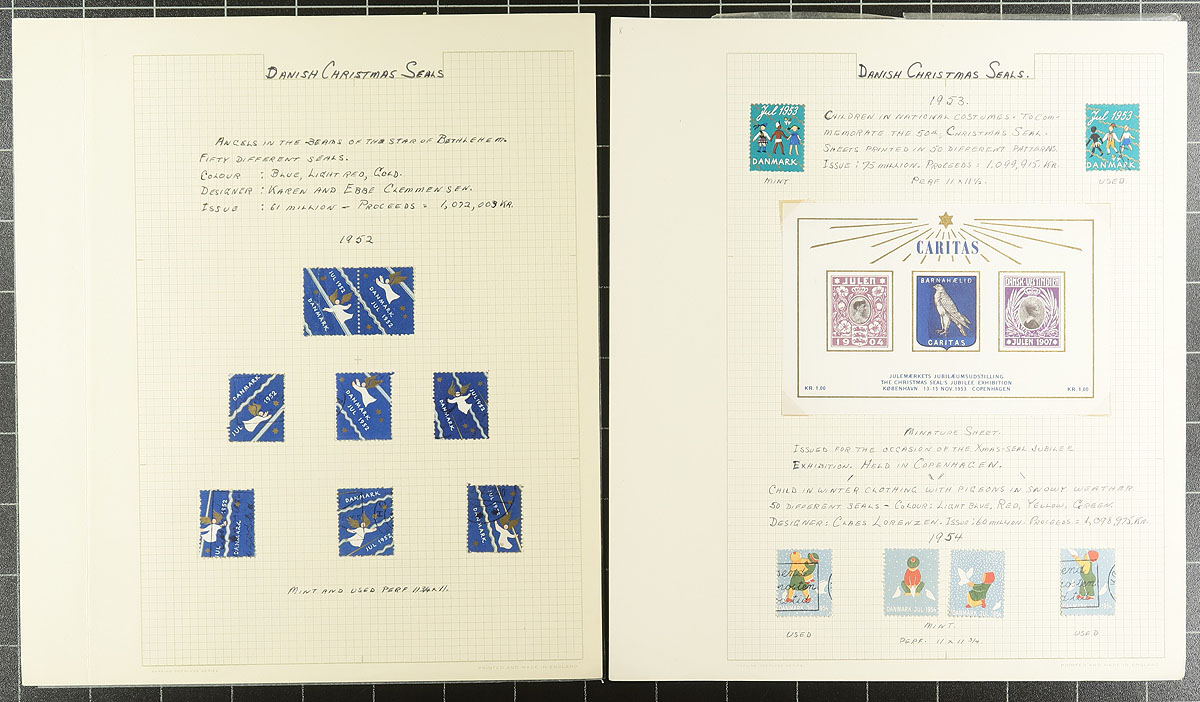 DANISH CHRISTMAS SEALS
ANGELS IN THE BEAMS OF THE STAR OF BETHLEHEM.
FIFTY DIFFERENT SEALS.
COLOUR : BLUE, LIGHT RED, GOLD.
DESIGNER : KAREN AND EBBE CLEMMENSEN.
ISSUE : 61 MILLION – PROCEEDS = 1,072,003 KR.
1952
JUL 1952
DANMARK
DANMARK
JUL 1952
DANMARK
1952
JUL
DANMARK
JUL 1952
JUL 1952
DANMARK
1952
JUL
DANMARK
DANMARK
JUL 1952
JUL 1952
DANMARK
MINT AND USED PERF 11¾ x 11.
PRINTED AND MADE IN ENGLAND
x
DANISH CHRISTMAS SEALS.
1953.
Jul 1953
DANMARK
MINT
CHILDREN IN NATIONAL COSTUMES. TO COM-
MEMORATE THE 50th CHRISTMAS SEAL.
SHEETS PRINTED IN 50 DIFFERENT PATTERNS.
ISSUE : 75 MILLION. PROCEEDS = 1,099,915. KR.
PERF 11 x 11½.
Jul 1953
DANMARK
USED
CARITAS
JULEN
1904
BARNAHÆLID
CARITAS
DANSK VESTINDIEN
JULEN 1907
JULEMÆRKETS JUBILÆUMSUDSTILLING
THE CHRISTMAS SEAL'S JUBILEE EXHIBITION
KØBENHAVN 13-15 NOV. 1953 COPENHAGEN
KR. 1,00
KR. 1,00
MINATURE SHEET.
ISSUED FOR THE OCCASION OF THE XMAS-SEAL JUBILEE
EXHIBITION. HELD IN COPENHAGEN.
CHILD IN WINTER CLOTHING WITH PIGEONS IN SNOWY WEATHER
50 DIFFERENT SEALS – COLOUR: LIGHT BLUE, RED, YELLOW, GREEN.
DESIGNER: CLAES LORENZEN. ISSUE: 60 MILLION. PROCEEDS = 1,098,975 KR.
1954
DANMARK JUL 1954
USED
MINT.
USED
PERF. 11 x 11 ¾
PRINTED AND MADE IN ENGLAND